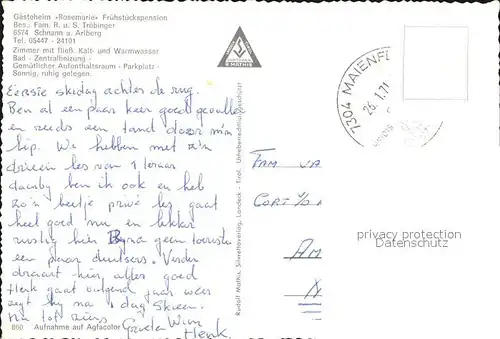 Gästeheim »Rosemarie« Frühstückspension
Bes.: Fam. R. u. S. Tröbinger
6574 Schnann a. Arlberg
Tel. 05447 - 24101
Zimmer mit fließ. Kalt- und Warmwasser
Bad - Zentralheizung -
Gemütlicher Aufenthaltsraum - Parkplatz -
Sonnig, ruhig gelegen.
R. MATHIS
7304 MAIENF
26.1.71
Eerste skidag achter de rug.
Ben al een paar keer goed gevallen
en reeds een tand door m'n
lip. We hebben met z'n
drieën les van 1 leraar
daarbij ben ik ook en heb
zo'n beetje privé les gaat
heel goed nu en lekker
rustig hier Bijna geen toeristen
een paar duitsers. Verder
draait hier alles goed
Henk gaat volgend jaar weer
zegt hij na 1 dag skieën.
Nu tot ziens
Wim
Henk.
FAM VA
CORT V/D
AM
privacy protection
Datenschutz
Rudolf Mathis, Silvrettaverlag, Landeck - Tirol. Urheberrechtlich geschützt
860 Aufnahme auf Agfacolor